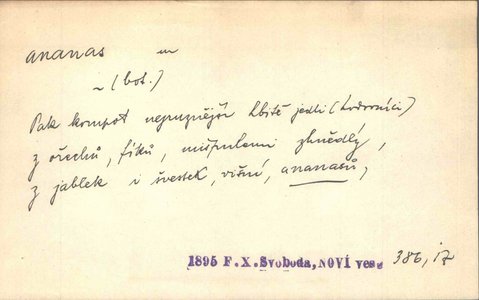 ananas m
~ (bot.)
Pak kompot nejruznějšř hbitě jedli (hodovníci)
z ořechů, fíků, mišpulemi zhnědlý,
z jablek i švestek, višní, ananasů,
1895 F.X.Svoboda, NOVÍ ves. 386, 17